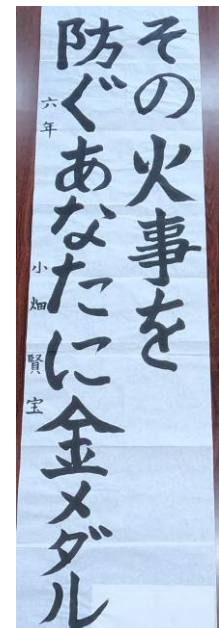 その火事を
防ぐあなたに金メダル
六年 小畑 賢宝